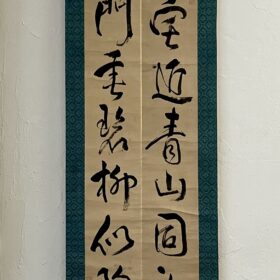 宅近青山同
門垂碧柳似